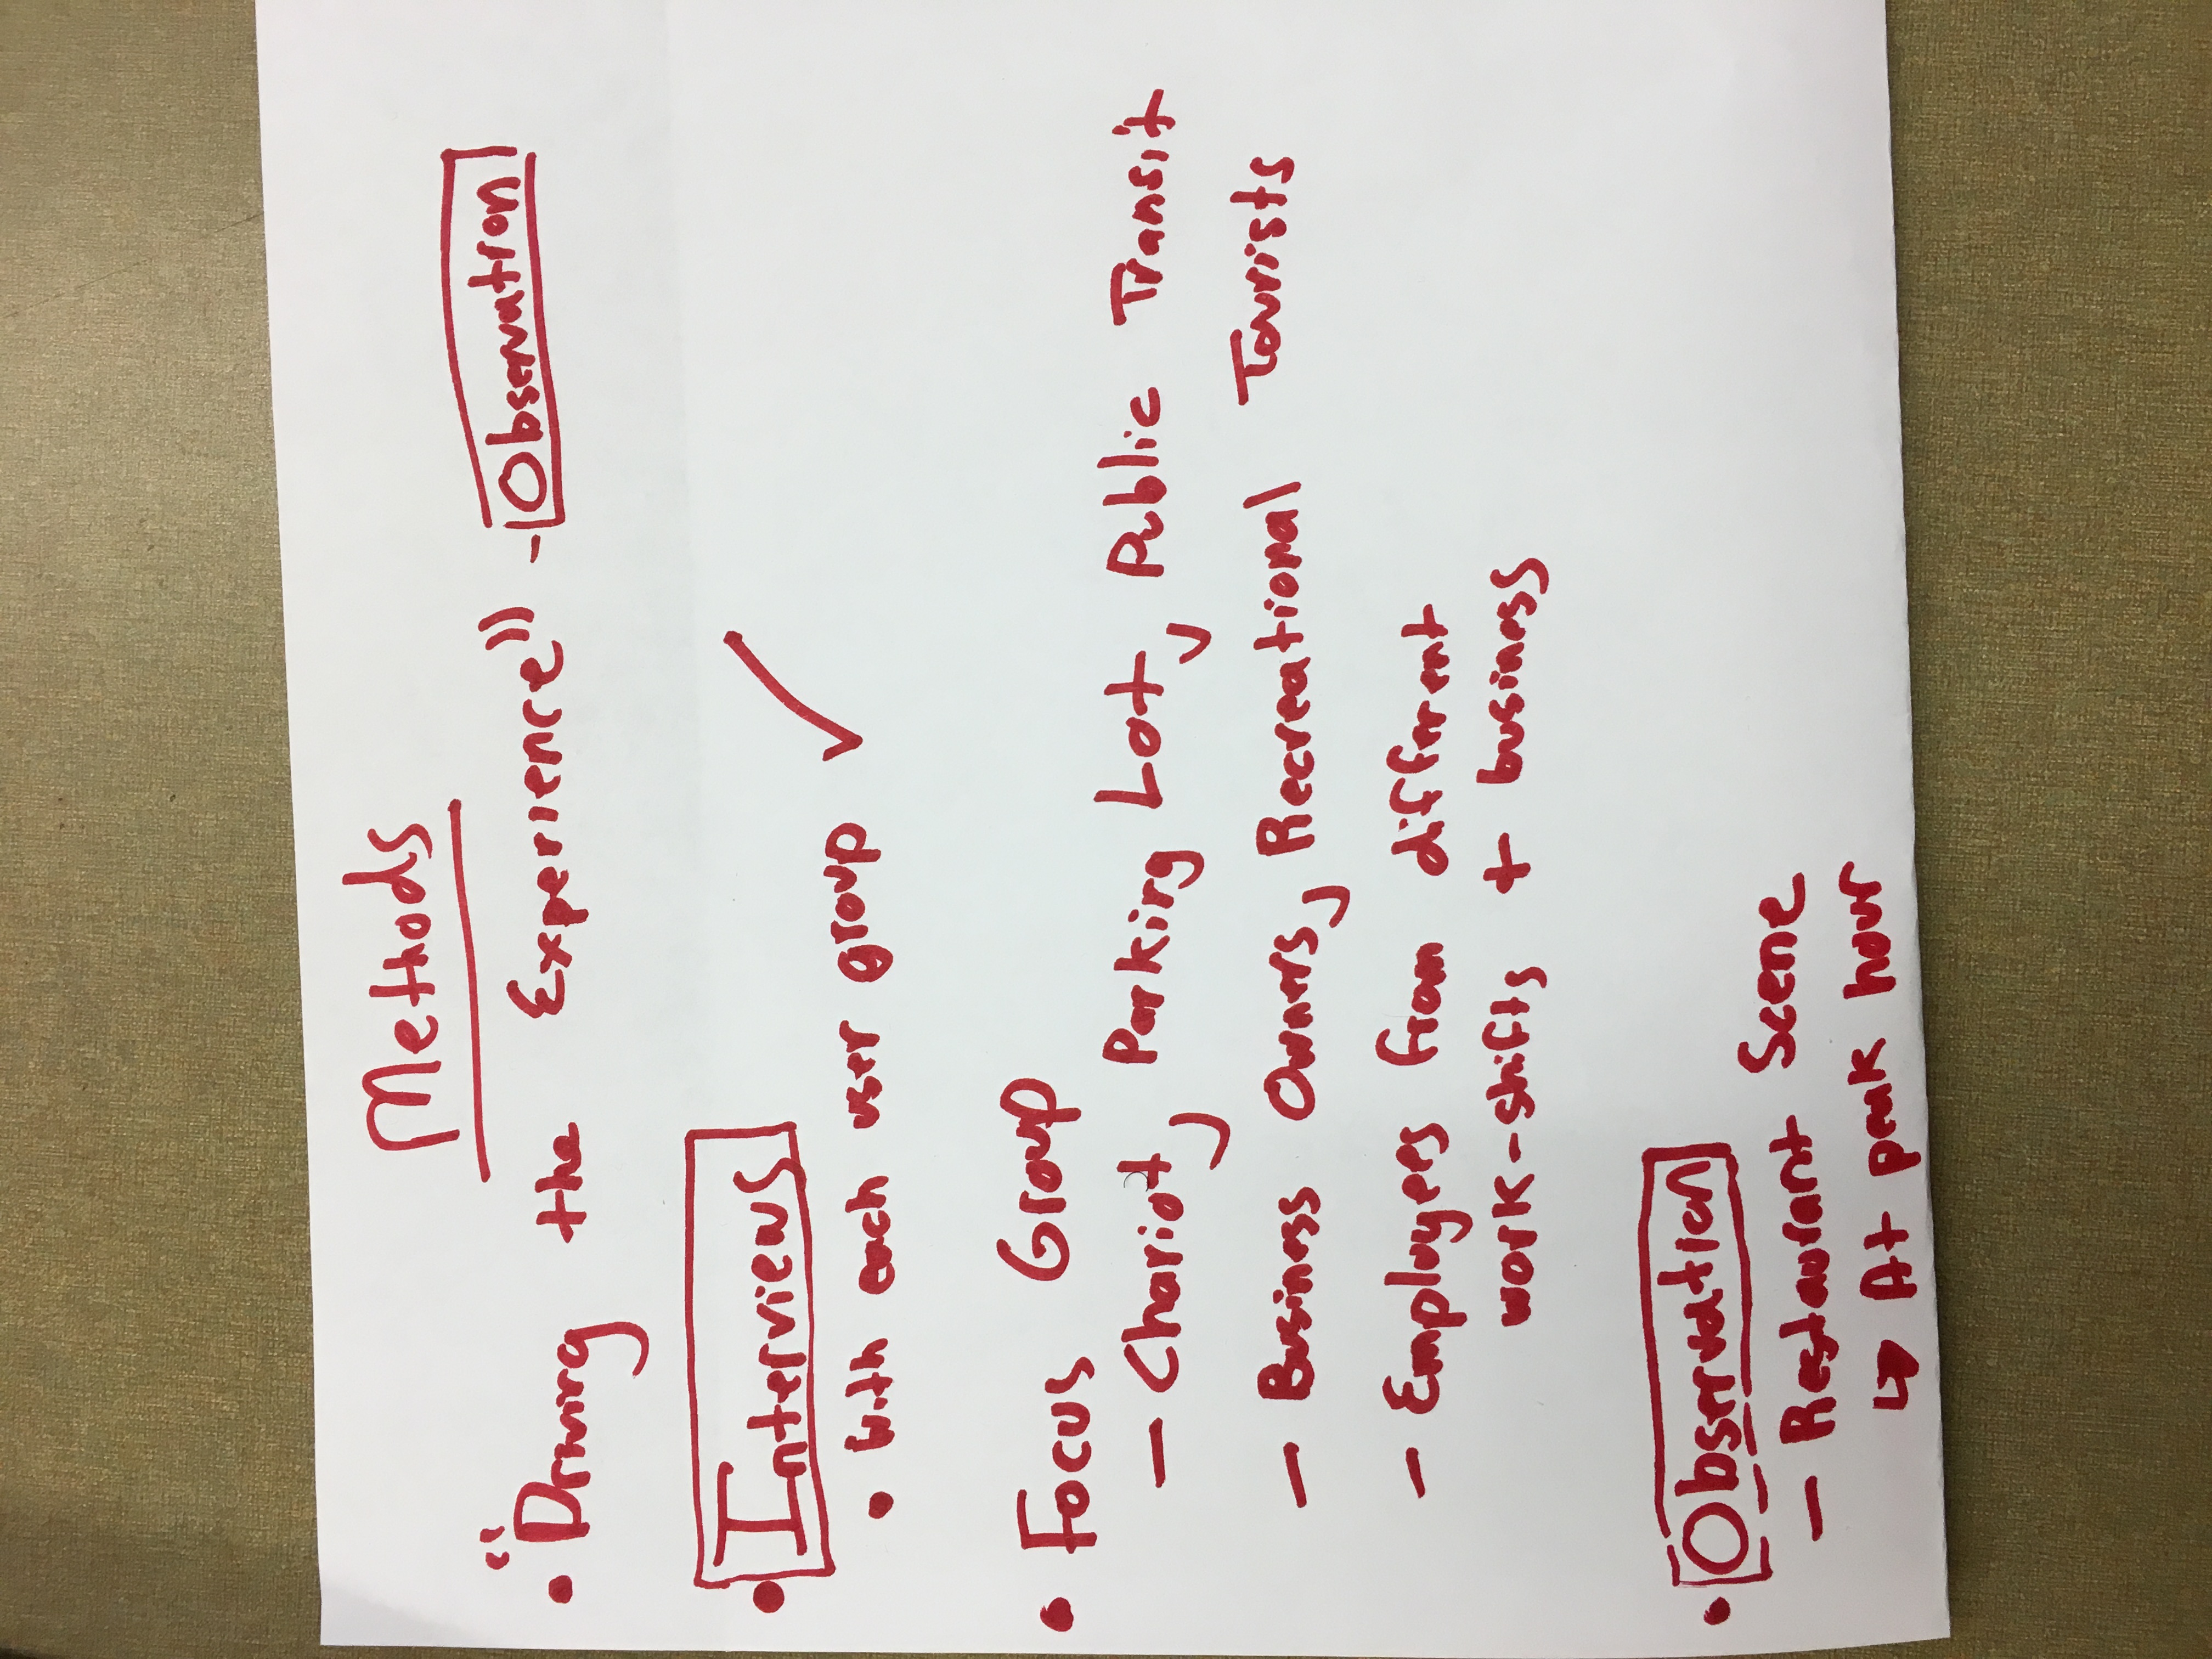 Methods
• "Driving the Experience" - Observation
• Interviews
• With each user group ✓
• Focus Group
— Chariot, Parking Lot, Public Transit
— Business Owners, Recreational Tourists
— Employees from different
work-shifts + business
• Observation
— Restaurant Scene
↳ At peak hour